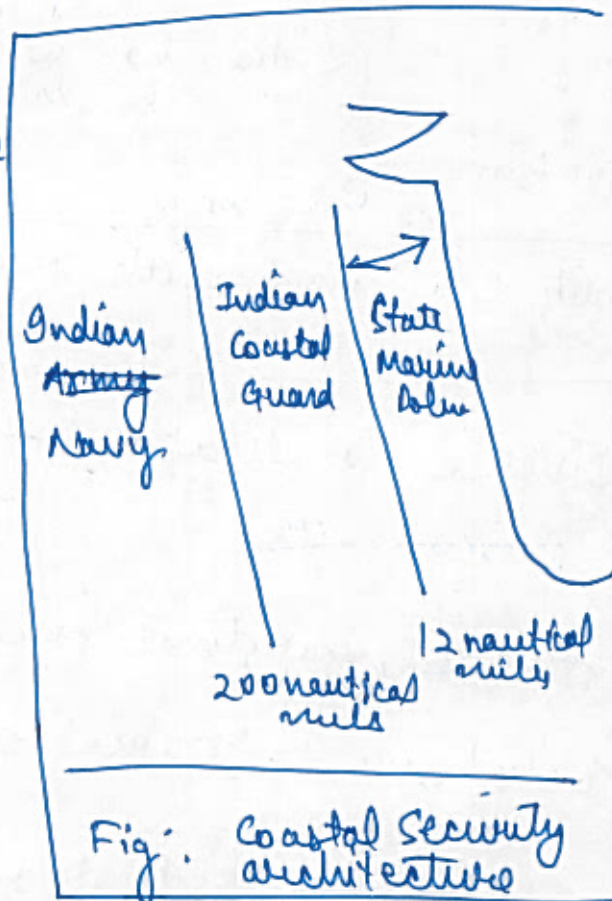 Indian
Army
Navy
Indian
Coastal
Guard
State
Marine
200 nautical
miles
12 nautical
miles
Fig: Coastal Security
architecture